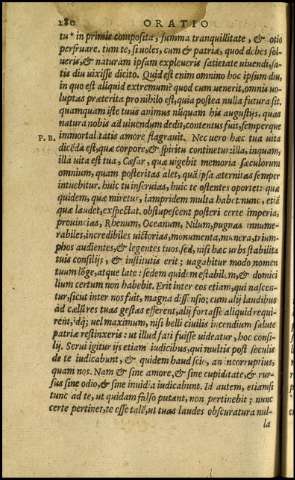 280 ORATIO
tu * in primis composita, summa tranquillitate, & otio
perfruare. tum te, si uoles, cum & patriæ, quod debes sol-
ueris, & naturam ipsam expleueris satietate uiuendi, sa-
tis diu uixisse dicito. Quid est enim omnino hoc ipsum diu,
in quo est aliquid extremum? quod cum uenerit, omnis uo-
luptas præterita pro nihilo est, quia postea nulla futura sit.
quamquam iste tuus animus nūquam his angustijs, quas
natura nobis ad uiuendum dedit, contentus fuit, semperque
P. B. immortalitatis amore flagrauit. Nec uero hæc tua uita
dicēda est, quæ corpore, & spiritu continetur. illa, inquam,
illa uita est tua, Cæsar, quæ uigebit memoria sæculorum
omnium, quam posteritas alet, quā ipsa æternitas semper
intuebitur. huic tu inseruias, huic te ostentes oportet: quæ
quidem, quæ miretur, iampridem multa habet. nunc, etiā
quæ laudet, exspectat. obstupescent posteri certe imperia,
prouincias, Rhenum, Oceanum, Nilum, pugnas innume-
rabiles, incredibiles uictorias, monumenta, munera, trium-
phos audientes, & legentes tuos. sed, nisi hæc urbs stabilita
tuis consilijs, & institutis erit; uagabitur modo nomen
tuum lōge, atque late: sedem quidem stabilem, & domici
lium certum non habebit. Erit inter eos etiam, qui nascen-
tur, sicut inter nos fuit, magna dissensio; cum alij laudibus
ad cælū res tuas gestas efferent, alij fortasse aliquid requi-
rent, idq́; uel maximum, nisi belli ciuilis incendium salute
patriæ restinxeris: ut illud fati fuisse uideatur, hoc consi-
lij. Serui igitur ijs etiam iudicibus, qui multis post sæculis
de te iudicabunt, & quidem haud scio, an incorruptius,
quam nos. Nam & sine amore, & sine cupiditate, & rur-
sus sine odio, & sine inuidia iudicabunt. Id autem, etiamsi
tunc ad te, ut quidam falso putant, non pertinebit: nunc
certe pertinet, te esse talē, ut tuas laudes obscuratura nul-
la